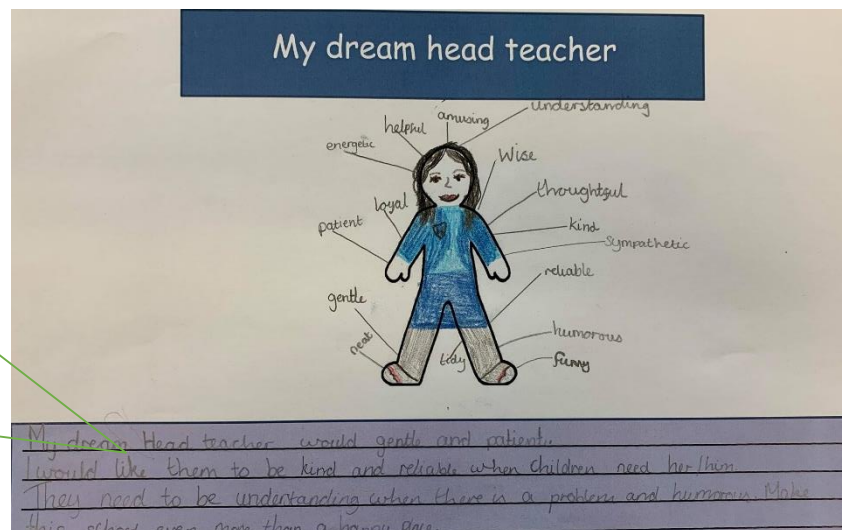 My dream head teacher
understanding
amusing
helpful
energetic
Wise
loyal
thoughtful
patient
kind
Sympathetic
reliable
gentle
humorous
neat
tidy
funny
My dream Head teacher would gentle and patient.
I would like them to be kind and reliable when children need her/him.
They need to be understanding when there is a problem and humorous. Make
this school even more than a happy place.